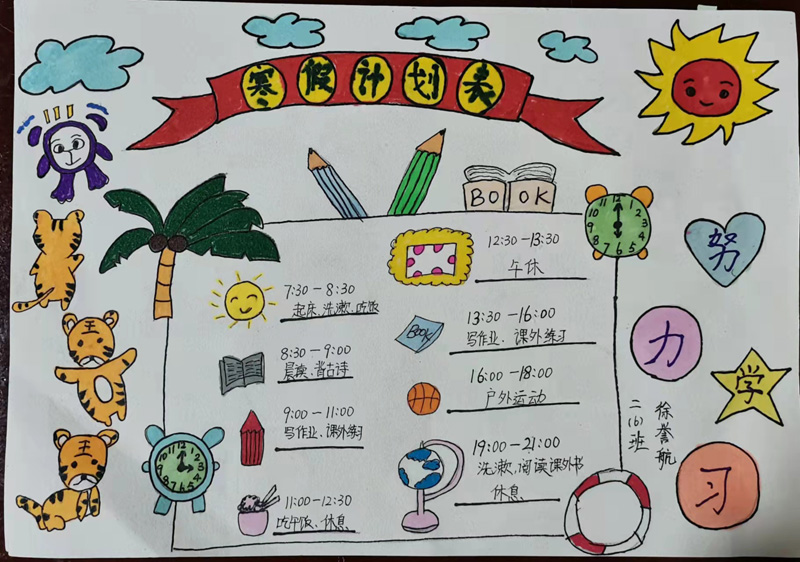 寒假计划表
BOOK
7:30-8:30
起床、洗漱、吃饭
8:30-9:00
晨读、背古诗
9:00-11:00
写作业、课外练习
11:00-12:30
吃午饭、休息
12:30-13:30
午休
BOOK
13:30-16:00
写作业、课外练习
16:00-18:00
户外运动
19:00-21:00
洗漱、阅读课外书
休息
12
1
2
3
4
5
6
7
8
9
10
11
12
1
2
3
4
5
6
7
8
9
10
11
王
王
努
力
学
习
二(6)班
徐誉航